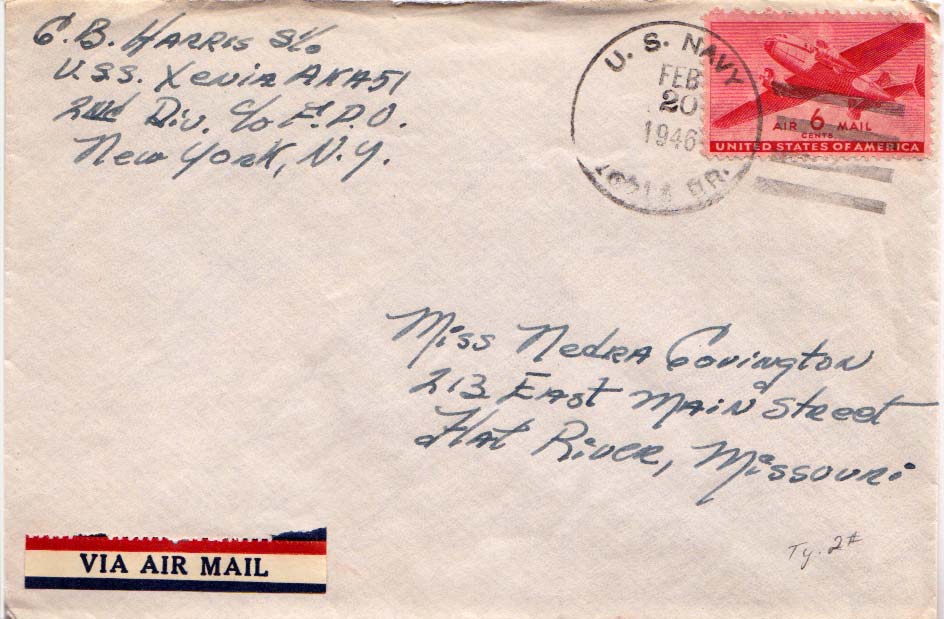 C. B. Harris S1/c
U.S.S. Xenia AKA51
2nd Div. c/o F.P.O.
New York, N.Y.
U. S. NAVY
FEB
20
1946
BR.
AIR 6 MAIL
CENTS
UNITED STATES OF AMERICA
Miss Nedra Covington
213 East Main Street
Flat River, Missouri
VIA AIR MAIL
Ty. 2